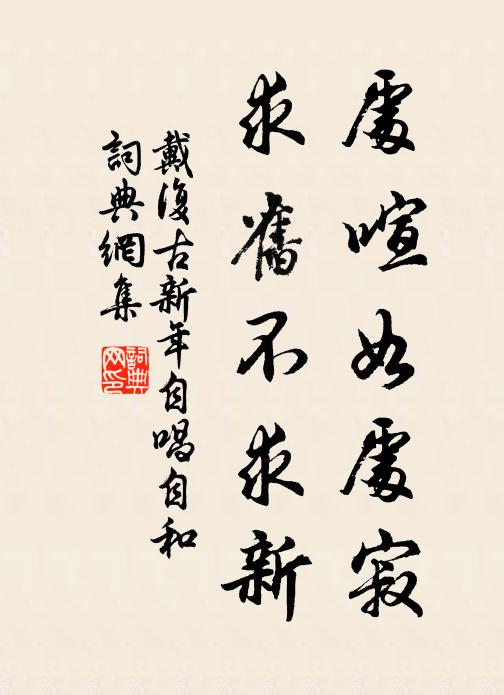 處喧如處寂
求舊不求新
戴復古新年自唱自和
詞典網集
詞典网印